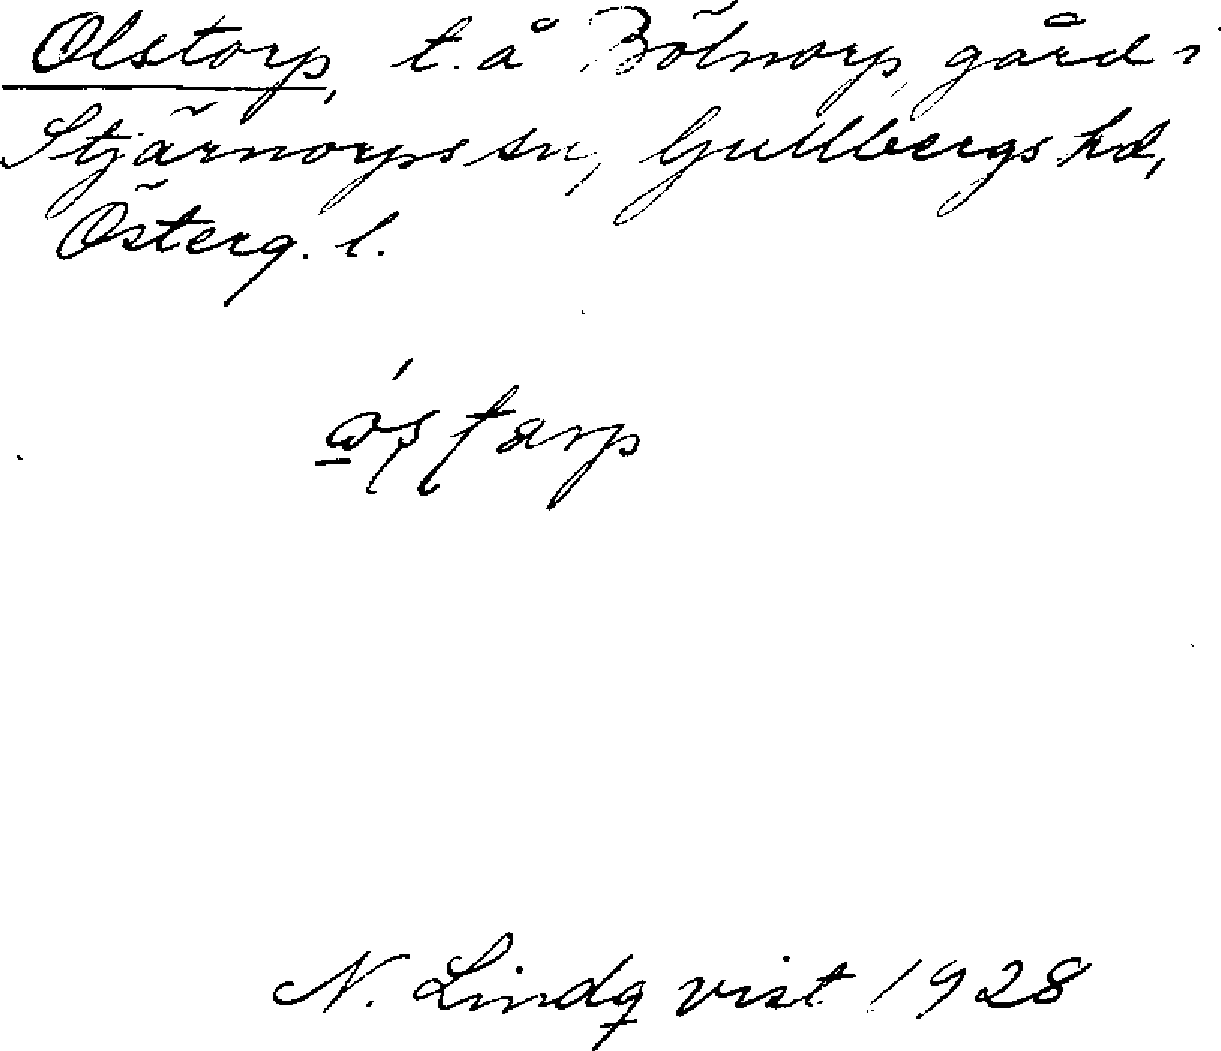 Olstorp, t. å Bölnorp, gård i
Stjärnorps sn, Gullbergs hd,
Österg. l.
N. Lindqvist 1928